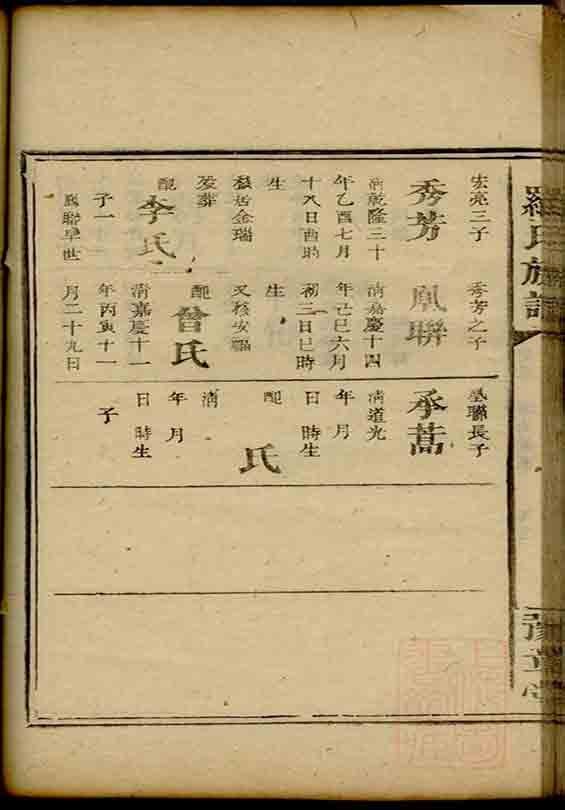 羅氏族譜
豫章堂
宏亮三子
秀芳
清乾隆三十
年乙酉七月
十八日酉時
生
移居金瑞
歿葬
配
李氏
子一
鳳聯早世
秀芳之子
鳳聯
清嘉慶十四
年己巳六月
初二日巳時
生
又移安福
配
曾氏
清嘉慶十一
年丙寅十一
月二十九日
鳳聯長子
承蒿
清道光
年月
日時生
配
氏
清
年月
日時生
子